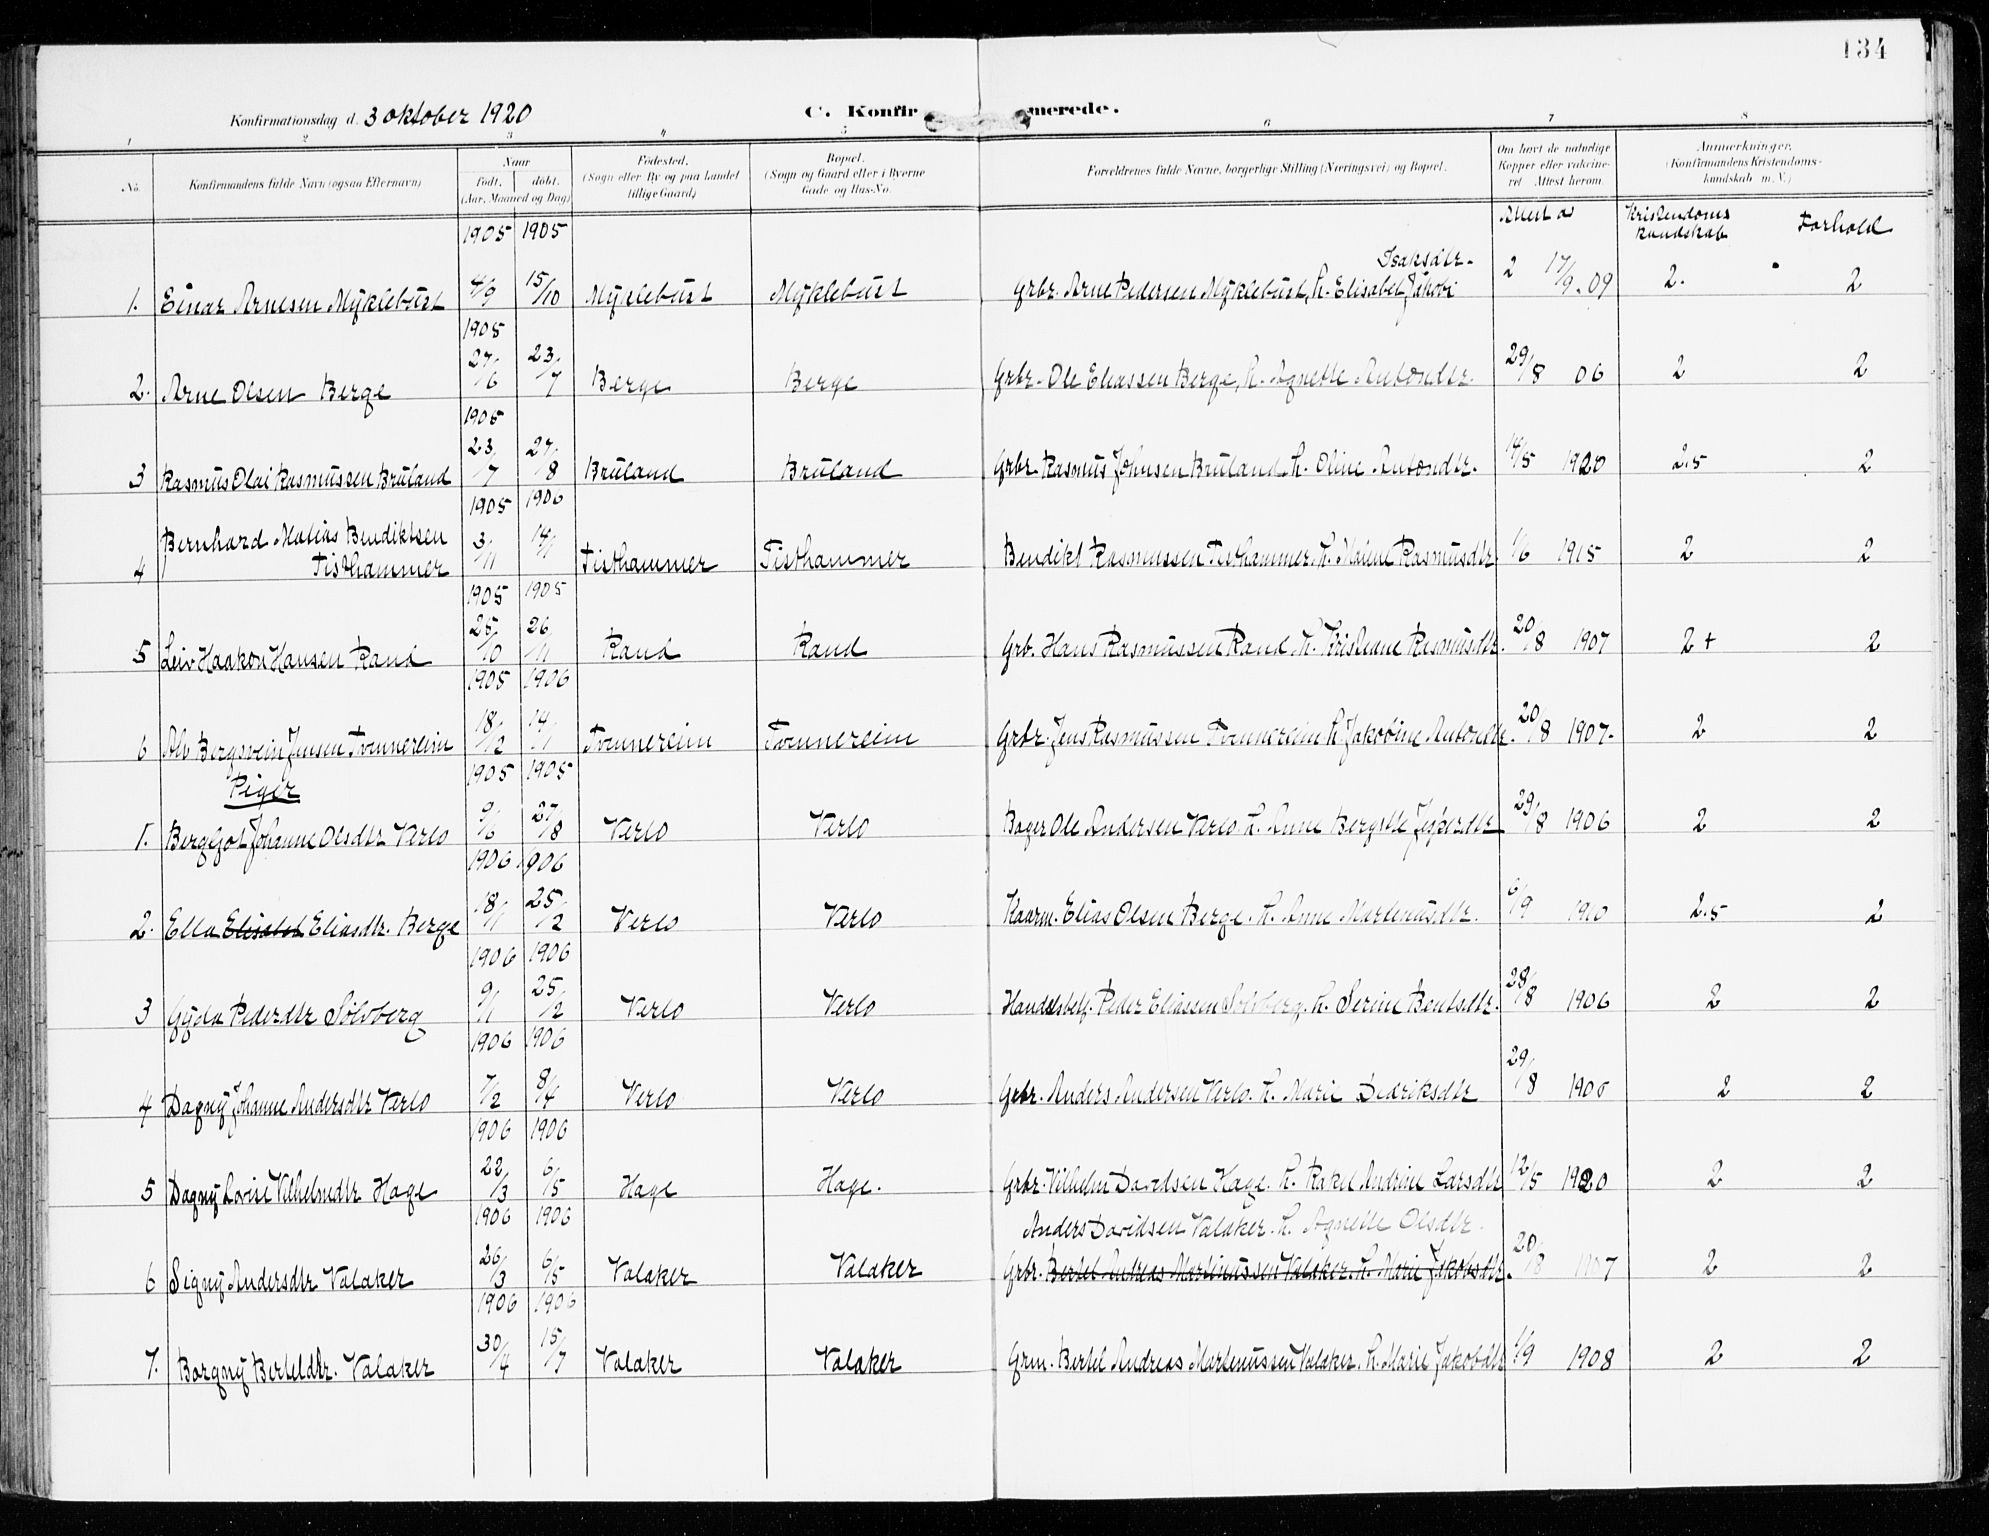 134
Konfirmationsdag d. 3 oktober 1920
C. Konfirmerede.
1 2 3 4 5 6 7 8
No. Konfirmandens fulde Navn (ogsaa Efternavn) Naar født, døbt. (Aar, Maaned og Dag) Fødested. (Sogn eller By og paa Landet tillige Gaard) Bopæl. (Sogn og Gaard eller i Byerne Gade og Hus-No. Forældrenes fulde Navne, borgerlige Stilling (Næringsvei) og Bopæl. Om havt de naturlige Kopper eller vakcineret. Attest herom. Anmerkninger. (Konfirmandens Kristendomskundskab m. V.)
Attest av Kristendoms kundskab Forhold
1905 1905
Isaksdtr.
1. Einar Arnesen Myklebust 4/9 15/10 Myklebust Myklebust Grbr. Arne Pedersen Myklebust, h. Elisabet Jakobi 2 17/9.09 2. 2
1905
2. Arne Olsen Berge 27/6 23/7 Berge Berge Grbr. Ole Eliassen Berge, h. Agnette Antondtr. 29/8 06 2 2
1905
3 Rasmus Olai Rasmussen Bruland 23/7 27/8 Bruland Bruland Grbr Rasmus Johnsen Bruland h. Oline Antondtr. 14/5 1920 2.5 2
1905 1906
Bernhard Matias Bendiktsen
4 Tisthammer 3/11 14/1 Tisthammer Tisthammer Bendikt Rasmussen Tisthammer. h. Maline Rasmusdtr 1/6 1915 2 2
1905 1905
5 Leiv Haakon Hansen Rand 25/10 26/11 Rand Rand Grb. Hans Rasmussen Rand h. Kristiane Rasmusdtr. 20/8 1907 2 + 2
1905 1906
6 Alv Bergsvein Jensen Tvennereim 18/12 14/1 Tvennereim Tvennereim Grbr. Jens Rasmussen Tvennereim h. Jakobine Antondtr. 20/8 1907. 2 2
1905 1905
Piger
1. Bergljot Johanne Olsdtr Verlo 9/6 27/8 Verlo Verlo Bager Ole Andersen Verlo. h. Anne Bergitte Jesperdtr 29/8 1906 2 2
1906 1906
2. Ella Elisabet Eliasdtr. Berge 18/1 25/2 Verlo Verlo Elias Olsen Berge. h. Anne Martinusdtr. 6/9 1910 2.5 2
1906 1906
3 Gyda Pederdtr Solvberg 9/1 25/2 Verlo Verlo Handelsbetj. Peder Eliassen Solvberg. h. Serine Bentsdtr. 28/8 1906 2 2
1906 1906
4 Dagny Johanne Andersdtr Verlo 7/2 8/4 Verlo Verlo Grbr. Anders Andersen Verlo. h. Marie Dedriksdtr 29/8 1906 2 2
1906 1906
5 Dagny Lovise Vilhelmdtr Hage 22/3 6/5 Hage Hage. Grbr. Vilhelm Davidsen Hage. h. Rakel Andrine Larsdtr 12/5 1920 2 2
1906 1906
Anders Davidsen Valaker. h. Agnette Olsdtr.
6 Signy Andersdtr Valaker 26/3 6/5 Valaker Valaker Grbr. Bertel Andreas Martinussen Valaker. h. Marie Jakobsdtr. 20/8 1907 2 2
1906 1906
7. Borgny Berteldtr. Valaker 30/4 15/7 Valaker Valaker Grm. Bertel Andreas Martinussen Valaker. h. Marie Jakobdtr 1/9 1908 2 2